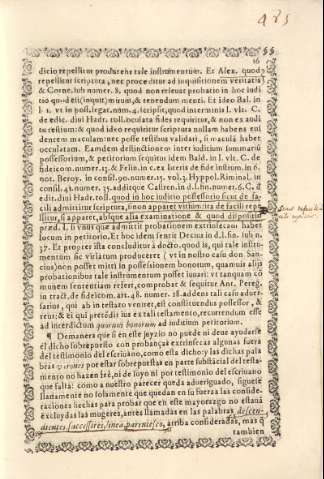 485
55
16
dicio repellitur producens tale instrumentum. Et Alex. quod
repellitur scriptura, nec proceditur ad inquisitionem veritatis
& Corne. sub numer. 8. quod non reseruat probatio in hoc iudi
tio quod stit (inquit) meum, & tenendum menti. Et ideo Bal. in
l. 1. vt in poss. legat. num. 4. scripsit, quod in terminis l. vlt. C.
de edic. diui Hadr. toll. oculata fides requiritur, & non ex audi
tu testium: & quod ideo requiritur scriptura nullam habens eui
dentem maculam: nec posse testibus validari, si maculã habet
occultam. Eamdem destinctionem inter iuditium summariũ
possessorium, & petitorium sequitur idem Bald. in l. vlt. C. de
fideicom. numer. 13. & Felin. in c. ex literis de fide instrum. in 6.
not. Beroy. in consil. 90. numer. 15. vol. 3. Hyppol. Riminal. in
consil. 41. numer. 35. additque Castren. in d. l. fin. numer. 6. C. de
edit. diui Hadr. tol. quod in hoc iuditio possessorio sicut de fa-
cili admittitur scriptura, si non apparet vitium ita de facili repe
llitur, si apparet, absque alia examinatione & quod dispositio
præd. l. si vnus que admittit probationem extrinsecam habet
locum in petitorio. Et hoc idem sentit Decius in d. l. fin. sub n.
37. Et propter ista concluditur à docto. quod is, qui tale instru-
mentum sic viciatum produceret (vt in nostro casu don San-
cius) non posset mitti in possessionem bonorum, quamuis alijs
probationibus tale instrumentum posset iuuari: vt tanquam cõ
munem sententiam refert, comprobat & sequitur Ant. Peregr.
in tract. de fideicom. art. 48. numer. 18. addens tali casu aduer-
sarius, qui ab intestato venit, est constituendus possessor, &
reus; & ei qui prætendit ius ex tali testamento, recurrendum esse
ad interdictum quorum bonorum, ad iuditium petitorium.
¶ Demanera que si en este juyzio no puede ni deue ayudarse
el dicho sobrepuesto con probanças extrinsecas algunas fuera
del testimonio del escriuano, como esta dicho: y las dichas pala
bras y varones por estar sobrepuestas en parte substãcial del testa-
mento no hazen fee, ni de suyo ni por testimonio del escriuano
que falta: como a nuestro parecer queda aueriguado, siguese
llanamente no solamente que quedan en su fuerza las conside-
raciones hechas para probar que en este mayorazgo no estanã
excluydas las mugeres, antes llamadas en las palabras, descen-
dientes, successores, linea, parentesco, arriba consideradas, mas q̃
tambien